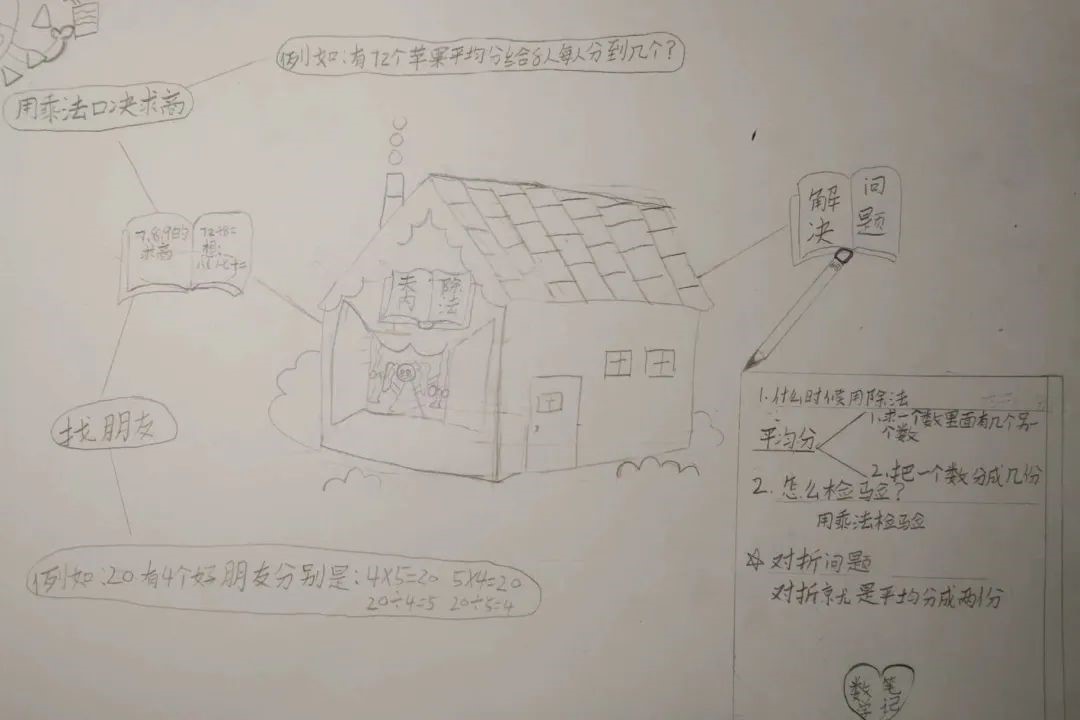 例如:有72个苹果平均分给8人每人分到几个?
用乘法口决求商
7、8、9的
求商
72÷8=
想:
解决
问题
表内
除法
找朋友
例如:20有4个好朋友分别是:4×5=20 5×4=20
20÷4=5 20÷5=4
1.什么时候用除法
平均分
1.求一个数里面有几个另一
个数
2.把一个数分成几份
2.怎么检验?
用乘法检验
☆对折问题
对折就是平均分成两份
数学
笔记